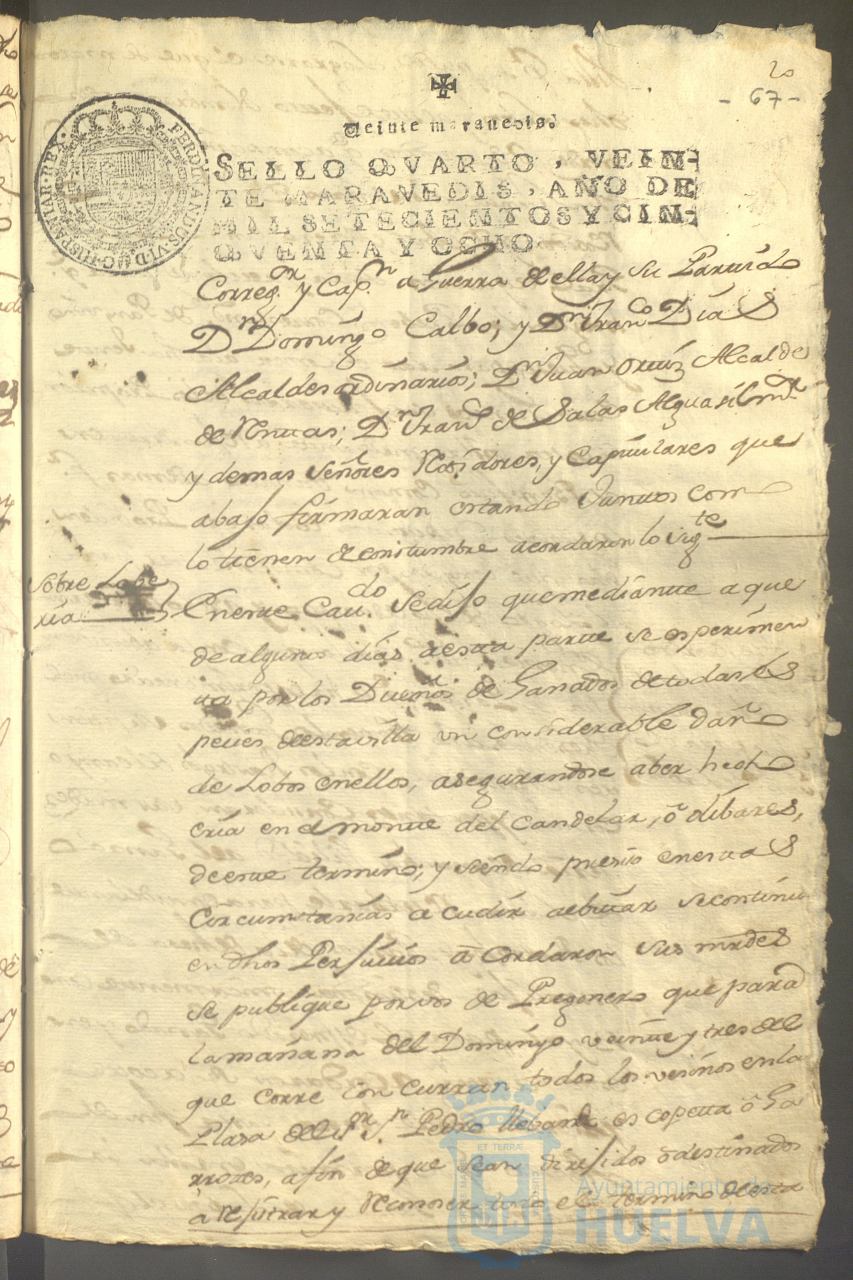 20
- 67 -
Veinte maravedis.
SELLO QVARTO, VEIN-
TE MARAVEDIS, AÑO DE
MIL SETECIENTOS Y CIN-
QVENTA Y OCHO
FERDINANDUS.VI.D.G.HISPANIAR.REX.
Correg.or y Cap.n a Guerra de ella y su Partido
D.n Domingo Calbo; y D.n Fran.co Dias
Alcaldes ordinarios; D.n Juan Ortiz Alcalde
de Rentas; D.n Fran.co de Salas Alguasil m.r
y demas señores Rexidores, y Capitulares que
abajo firmaran estando Juntos como
lo tienen de constumbre acordaron lo sig.te
Sobre Lobe
ria
En este Cav.do se dijo que mediante a que
de algunos dias a esta parte se esperimen
ta por los Dueños de Ganados de todas es
pecies de esta villa un considerable daño
de Lobos en ellos, asegurandose aber hecho
cria en el monte del Candelar, o dibares,
de este termino; y siendo presiso en estas
Circumstansias acudir a ebitar se continu
en dhos Perjuicios acordaron sus mrdes
se publique por vos de Pregonero que para
la mañana del Domingo veinte y tres del
que corre concurran todos los vesinos en la
Plasa del S.or S.n Pedro llebando escopeta o Ga
rrotes, a fin de que sean dirijidos o destinados
a rejistrar y reconoser todo el termino de esta
ET TERRÆ
Ayuntamiento de
HUELVA